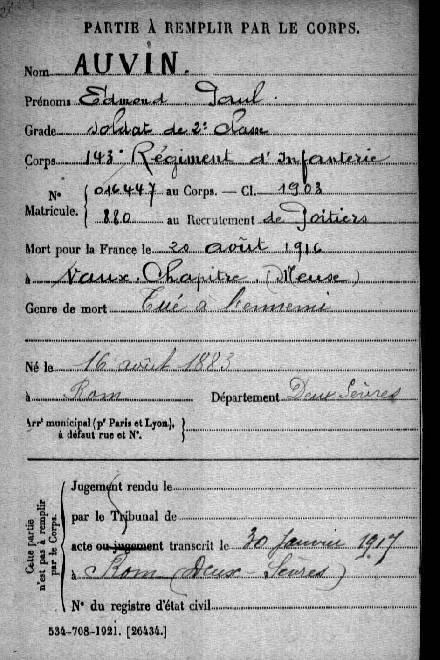 PARTIE À REMPLIR PAR LE CORPS.
Nom AUVIN.
Prénoms Edmond Paul.
Grade Soldat de 2e Classe
Corps 143e Régiment d'Infanterie
N° Matricule. { 016447 au Corps. — Cl. 1903
880 au Recrutement de Poitiers
Mort pour la France le 20 août 1916
à Vaux-Chapitre. (Meuse)
Genre de mort Tué à l'ennemi
Né le 16 août 1883
à Rom Département Deux Sèvres
Arrt municipal (pr Paris et Lyon), à défaut rue et N°.
Cette partie n'est pas à remplir par le Corps.
Jugement rendu le
par le Tribunal de
acte ou jugement transcrit le 30 Janvier 1917
à Rom (Deux-Sèvres)
N° du registre d'état civil
534-708-1921. [26434.]